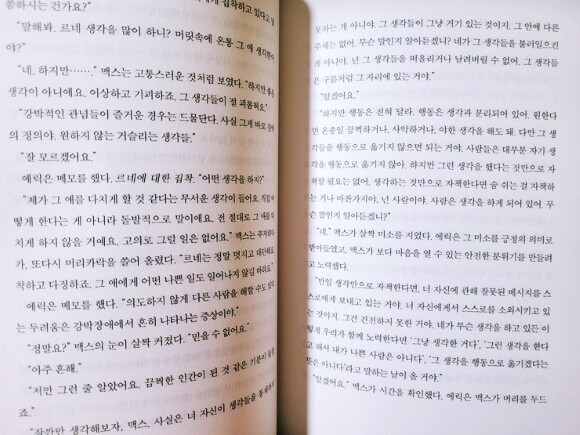 쓸하시는 건가요?"
"말해봐. 르네 생각을 많이 하니? 머릿속에 온통 그 애 생각뿐이
야?"
"네. 하지만……." 맥스는 고통스러운 것처럼 보였다. "하지만 좋은
생각이 아니에요. 이상하고 기괴하죠. 그 생각들이 절 괴롭혀요."
"강박적인 관념들이 즐거운 경우는 드물단다. 사실 그게 바로 강박
의 정의야. 원하지 않는 거슬리는 생각들."
"잘 모르겠어요."
에릭은 메모를 했다. 르네에 대한 집착. "어떤 생각을 하지?"
"제가 그 애를 다치게 할 것 같다는 무서운 생각이 들어요. 직접 어
떻게 한다는 게 아니라 돌발적으로 말이에요. 전 절대로 그 애를 다
치게 하지 않을 거예요. 고의로 그럴 일은 없어요." 맥스는 주저하다
가, 또다시 머리카락을 쓸어 올렸다. "르네는 정말 멋지고 대단해요.
착하고 다정하죠. 그 애에게 어떤 나쁜 일도 일어나지 않길 바라요."
에릭은 메모를 했다. "의도하지 않게 다른 사람을 해할 수도 있다
는 두려움은 강박장애에서 흔히 나타나는 증상이야."
"정말요?" 맥스의 눈이 살짝 커졌다. "믿을 수 없어요."
"아주 흔해."
"저만 그런 줄 알았어요. 끔찍한 인간이 된 것 같은 기분이
죠."
"잠깐만 생각해보자, 맥스. 사실은 너 자신이 생각들을
못하는 게 아니야. 그 생각들이 그냥 거기 있는 것이지. 그 안에 다른
주제는 없어. 무슨 말인지 알아듣겠니? 네가 그 생각들을 불러일으킨
게 아니야. 넌 그 생각들을 떠올리거나 날려버릴 수 없어. 그 생각들
은 구름처럼 그 자리에 있는 거야."
"알겠어요."
"하지만 행동은 전혀 달라. 행동은 생각과 분리되어 있어. 원한다
면 온종일 끔찍하거나, 사악하거나, 야한 생각을 해도 돼. 다만 그 생
각들을 행동으로 옮기지 않으면 되는 거야. 사람들은 대부분 자기 생
각을 행동으로 옮기지 않아. 하지만 그런 생각을 했다는 것만으로 자
책할 필요는 없어. 생각하는 것만으로 자책한다면 숨 쉬는 걸 자책하
는 거나 마찬가지야. 넌 사람이야. 사람은 생각을 하게 되어 있어. 무
슨 말인지 알아듣겠니?"
"네." 맥스가 살짝 미소를 지었다. 에릭은 그 미소를 긍정의 의미로
받아들였고, 맥스가 보다 마음을 열 수 있는 안전한 분위기를 만들려
고 노력했다.
"만일 생각만으로 자책한다면, 너 자신에 관해 잘못된 메시지를 스
스로에게 보내고 있는 거야. 너 자신에게서 스스로를 소외시키고 있
는 것이지. 그건 건전하지 못한 거야. 네가 무슨 생각을 하고 있든 이
렇게 우리가 함께 노력한다면 '그냥 생각한 거다', '그런 생각을 한다
고 해서 내가 나쁜 사람은 아니다', '그 생각을 행동으로 옮기겠다는
뜻은 아니다'라고 말하는 날이 올 거야."
"알겠어요." 맥스가 시간을 확인했다. 에릭은 맥스가 머리를 두드